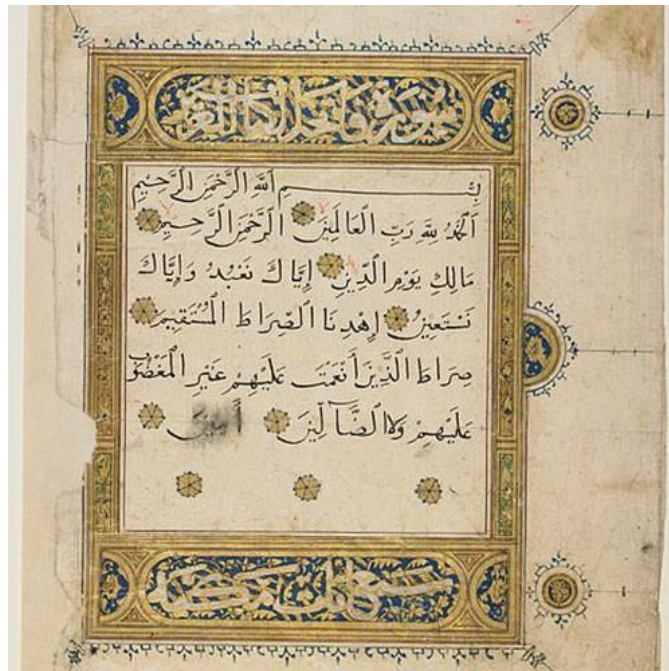 سورة فاتحة الكتاب العزيز
بِسْمِ ٱللَّهِ ٱلرَّحْمَٰنِ ٱلرَّحِيمِ
ٱلْحَمْدُ لِلَّهِ رَبِّ ٱلْعَالَمِينَ ٱلرَّحْمَٰنِ ٱلرَّحِيمِ
مَالِكِ يَوْمِ ٱلدِّينِ إِيَّاكَ نَعْبُدُ وَإِيَّاكَ
نَسْتَعِينُ إِهْدِنَا ٱلصِّرَاطَ ٱلْمُسْتَقِيمَ
صِرَاطَ ٱلَّذِينَ أَنْعَمْتَ عَلَيْهِمْ غَيْرِ ٱلْمَغْضُوبِ
عَلَيْهِمْ وَلَا ٱلضَّآلِّينَ